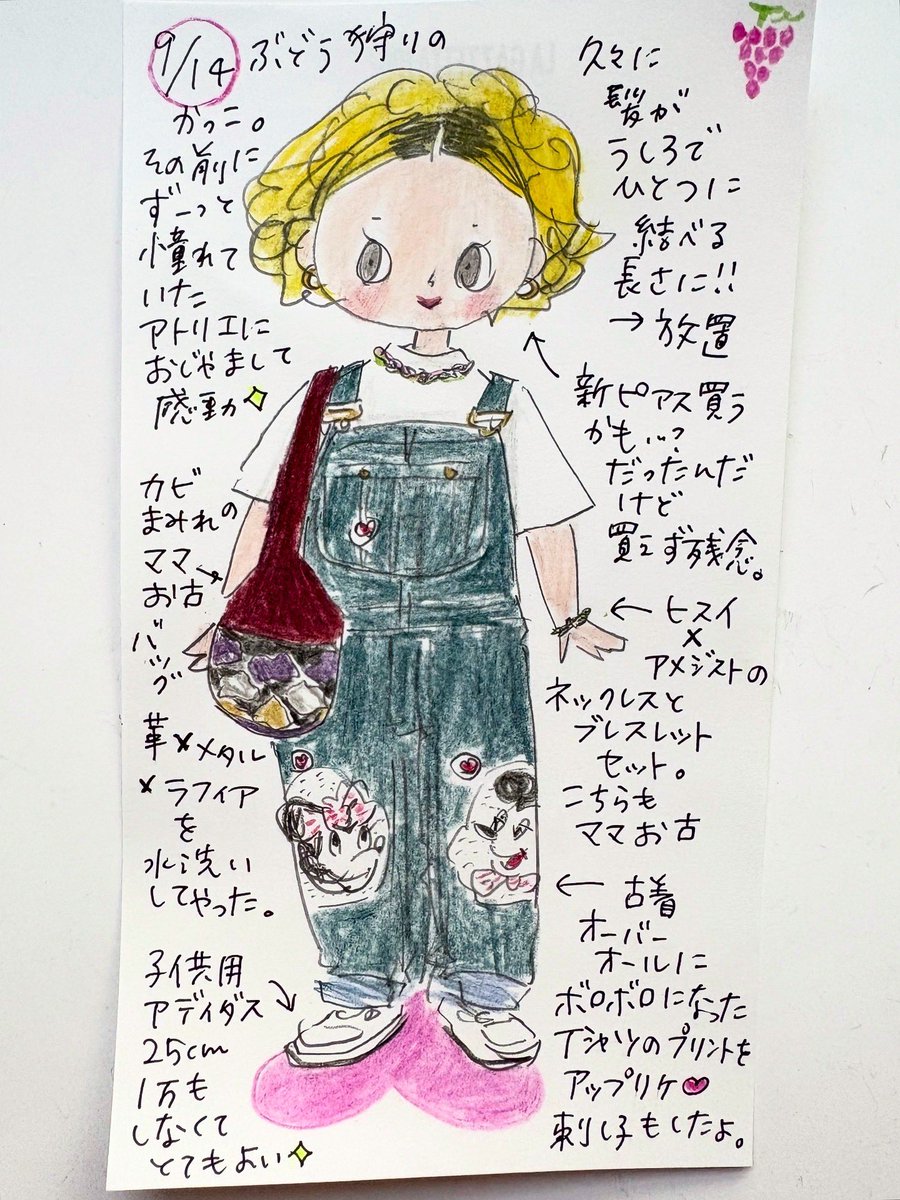 9/14 ぶどう狩りの
かっこ。
その前に
ずーっと
憧れて
いた
アトリエに
おじゃまして
感動
カビ
まみれの
ママ
お古
バッグ
革×メタル
×ラフィア
を
水洗い
してやった。
子供用
アディダス
25cm
1万も
しなくて
とてもよい
久々に
髪が
うしろで
ひとつに
結べる
長さに!!
→放置
新ピアス買う
かも…?
だったんだ
けど
買えず残念。
← ヒスイ
×
アメジストの
ネックレスと
ブレスレット
セット。
こちらも
ママお古
← 古着
オーバー
オールに
ボロボロになった
Tシャツのプリントを
アップリケ♥
刺し子もしたよ。